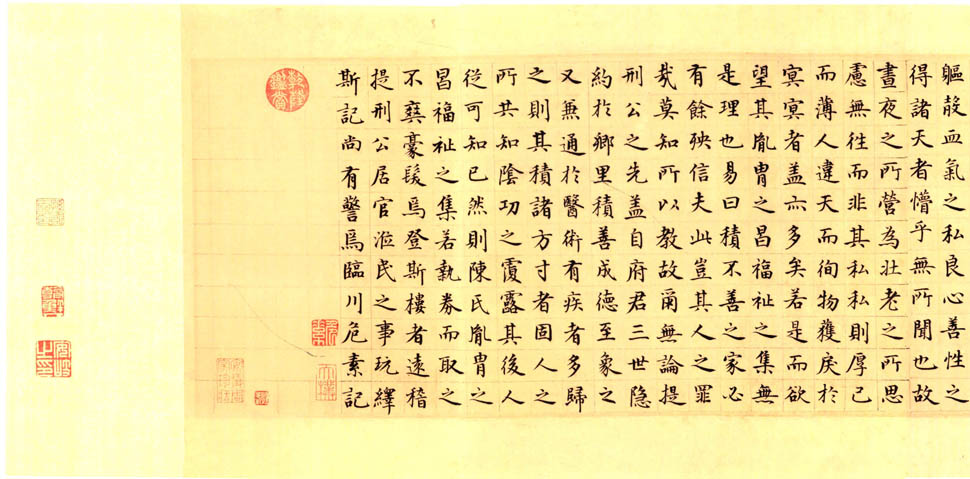 軀殼血氣之私良心善性之
得諸天者懵乎無所聞也故
晝夜之所營為壯老之所思
慮無往而非其私私則厚己
而薄人違天而徇物獲戾於
冥冥者盖亦多矣若是而欲
望其胤胄之昌福祉之集無
是理也易曰積不善之家必
有餘殃信夫此豈其人之罪
哉莫知所以教故爾無論提
刑公之先盖自府君三世隐
約於鄉里積善成德至象之
又兼通於醫術有疾者多歸
之則其積諸方寸者固人之
所共知陰功之覆露其後人
從可知已然則陳氏胤胄之
昌福祉之集若執券而取之
不爽豪髮焉登斯樓者遠稽
提刑公居官涖民之事玩繹
斯記尚有警焉臨川危素記
乾隆鑑賞